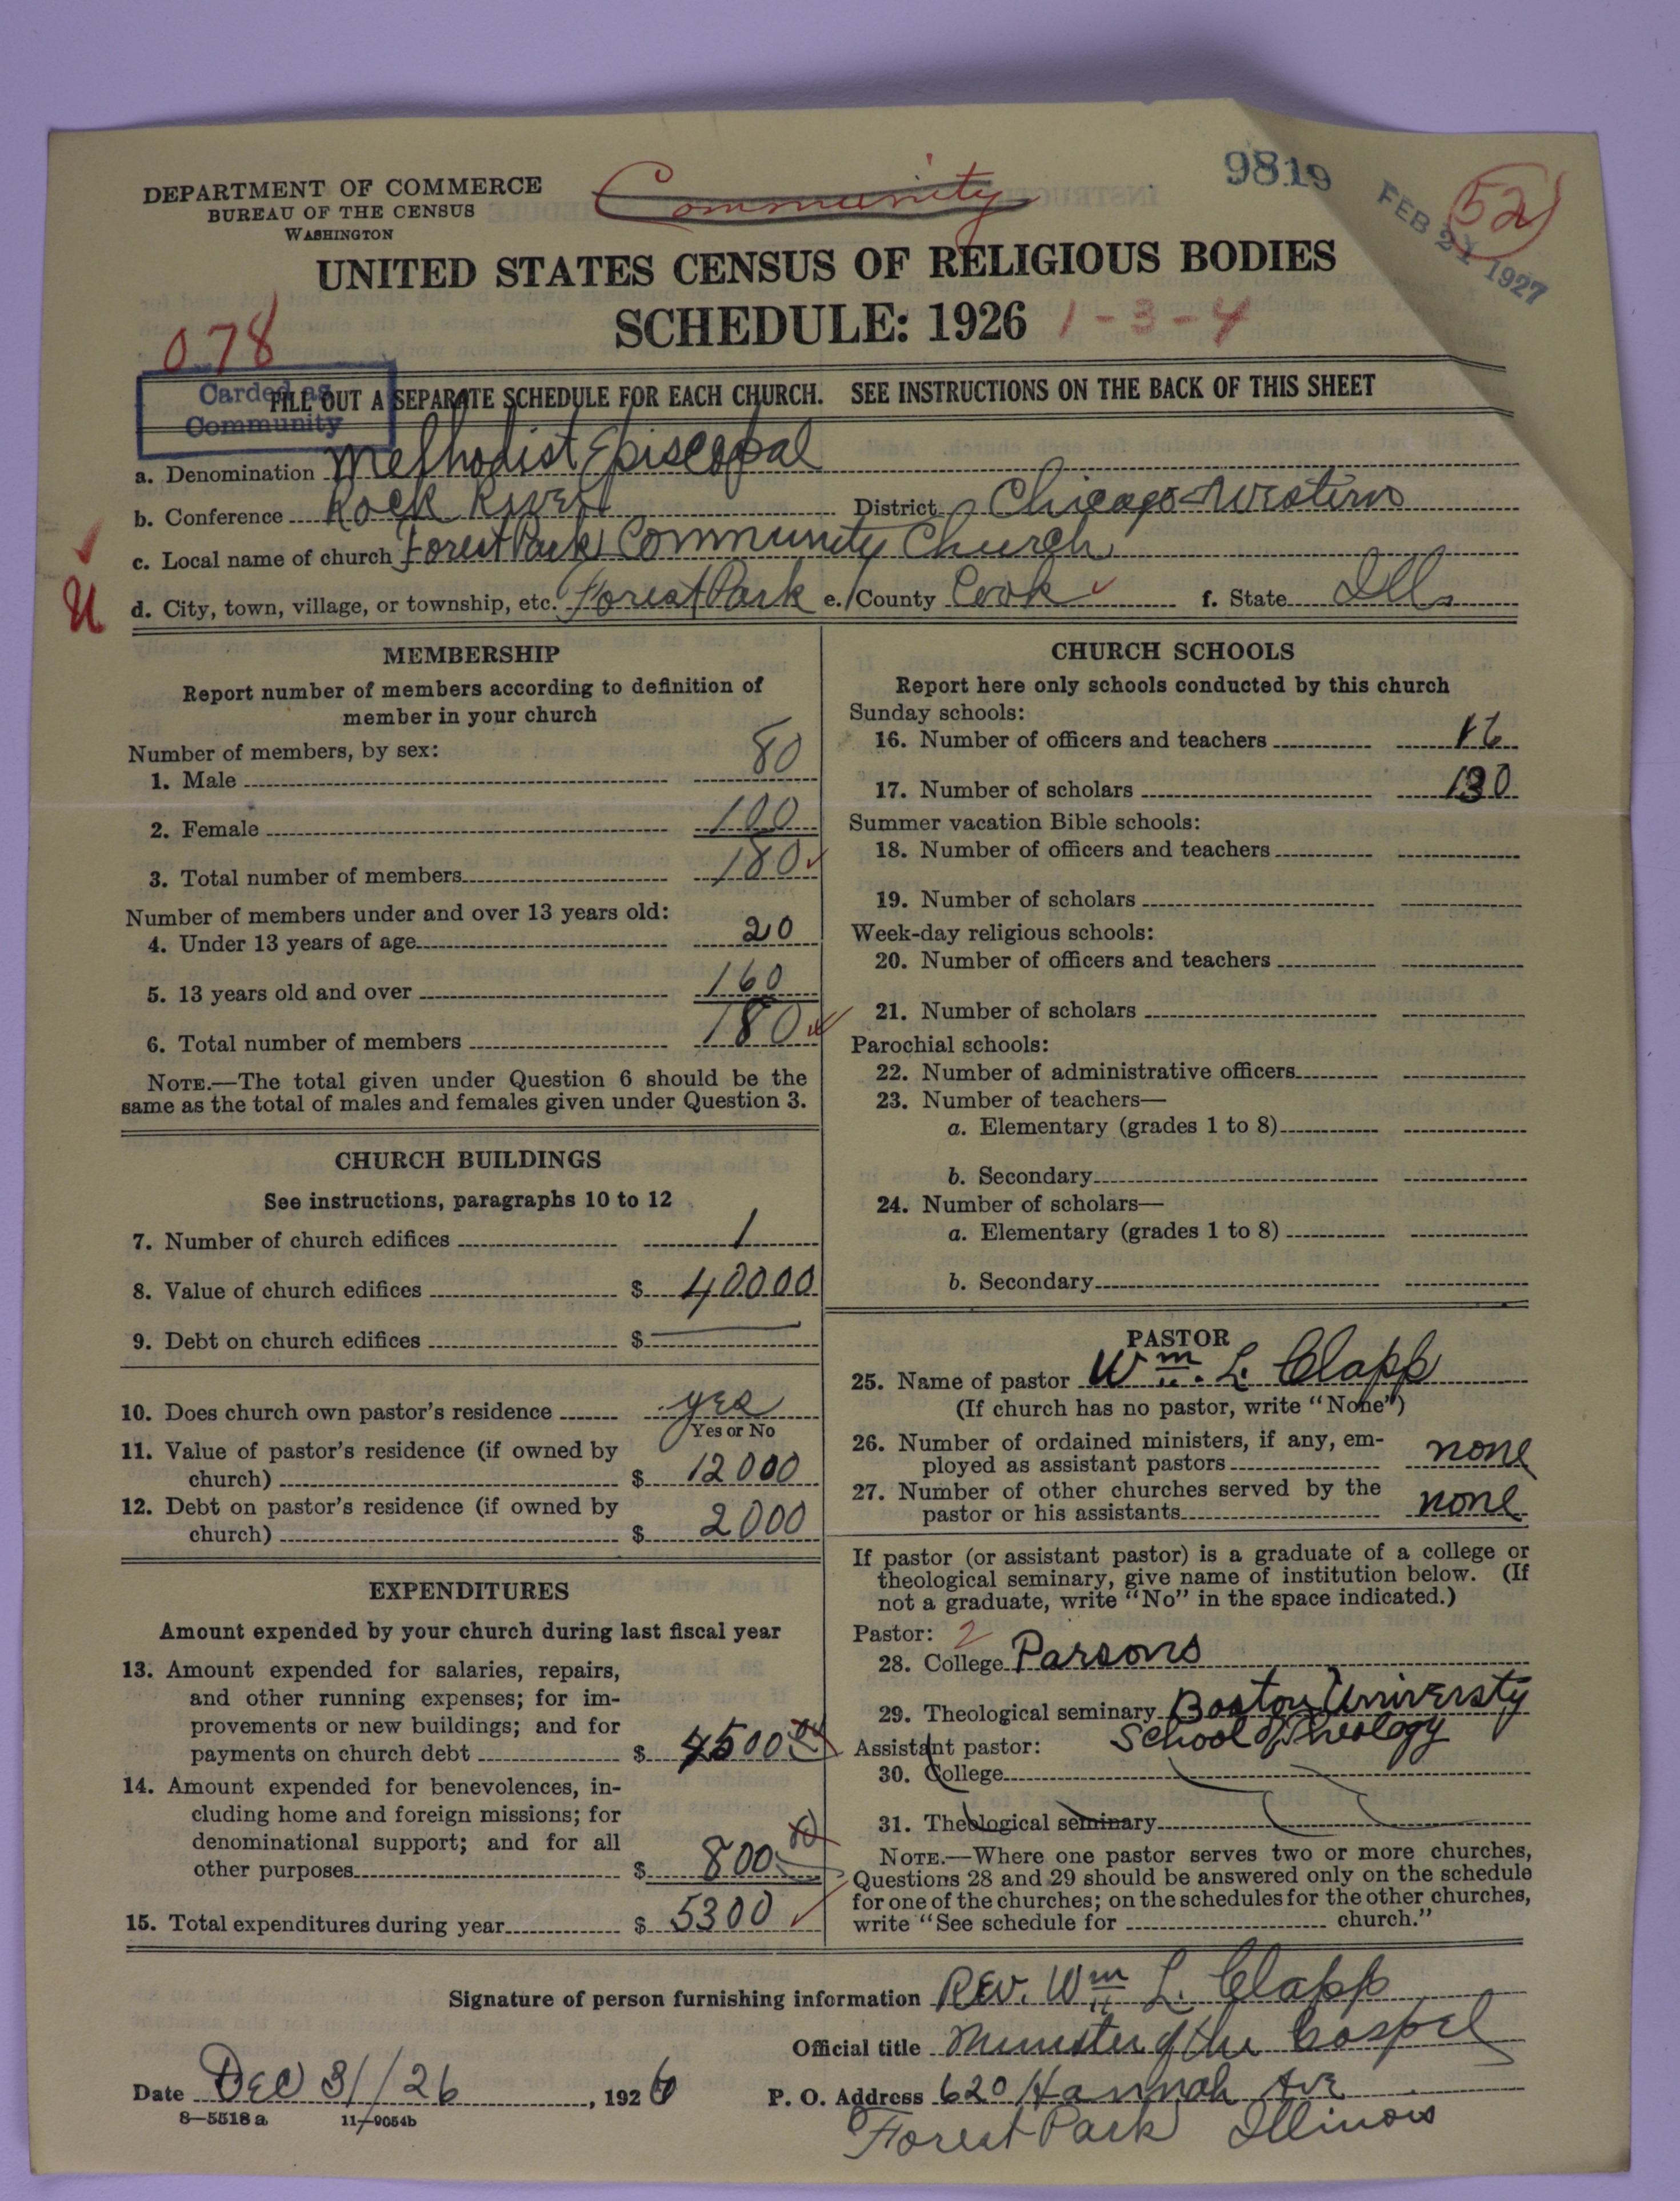 Community
9819
52
FEB 21 1927
DEPARTMENT OF COMMERCE
BUREAU OF THE CENSUS
WASHINGTON
UNITED STATES CENSUS OF RELIGIOUS BODIES
SCHEDULE: 1926 1-3-4
078
Carded as
Community
FILL OUT A SEPARATE SCHEDULE FOR EACH CHURCH. SEE INSTRUCTIONS ON THE BACK OF THIS SHEET
a. Denomination Methodist Episcopal
b. Conference Rock River District Chicago-Western
c. Local name of church Forest Park Community Church
d. City, town, village, or township, etc. Forest Park e. County Cook f. State Ills
MEMBERSHIP
Report number of members according to definition of
member in your church
Number of members, by sex:
1. Male 80
2. Female 100
3. Total number of members 180
Number of members under and over 13 years old:
4. Under 13 years of age 20
5. 13 years old and over 160
6. Total number of members 180
NOTE.—The total given under Question 6 should be the
same as the total of males and females given under Question 3.
CHURCH BUILDINGS
See instructions, paragraphs 10 to 12
7. Number of church edifices 1
8. Value of church edifices $ 40000
9. Debt on church edifices $ —
10. Does church own pastor's residence yes
Yes or No
11. Value of pastor's residence (if owned by
church) $ 12000
12. Debt on pastor's residence (if owned by
church) $ 2000
EXPENDITURES
Amount expended by your church during last fiscal year
13. Amount expended for salaries, repairs,
and other running expenses; for im-
provements or new buildings; and for
payments on church debt $ 4500
14. Amount expended for benevolences, in-
cluding home and foreign missions; for
denominational support; and for all
other purposes $ 800
15. Total expenditures during year $ 5300
CHURCH SCHOOLS
Report here only schools conducted by this church
Sunday schools:
16. Number of officers and teachers 16
17. Number of scholars 130
Summer vacation Bible schools:
18. Number of officers and teachers
19. Number of scholars
Week-day religious schools:
20. Number of officers and teachers
21. Number of scholars
Parochial schools:
22. Number of administrative officers
23. Number of teachers—
a. Elementary (grades 1 to 8)
b. Secondary
24. Number of scholars—
a. Elementary (grades 1 to 8)
b. Secondary
PASTOR
25. Name of pastor Wm. L. Clapp
(If church has no pastor, write "None")
26. Number of ordained ministers, if any, em-
ployed as assistant pastors none
27. Number of other churches served by the
pastor or his assistants none
If pastor (or assistant pastor) is a graduate of a college or
theological seminary, give name of institution below. (If
not a graduate, write "No" in the space indicated.)
Pastor: 2
28. College Parsons
29. Theological seminary Boston University
School of Theology
Assistant pastor:
30. College
31. Theological seminary
NOTE.—Where one pastor serves two or more churches,
Questions 28 and 29 should be answered only on the schedule
for one of the churches; on the schedules for the other churches,
write "See schedule for church."
Signature of person furnishing information Rev. Wm L. Clapp
Official title Minister of the Gospel
Date Dec 31/26, 1926 P. O. Address 620 Hannah Ave
8—5518 a 11—9054b
Forest Park Illinois